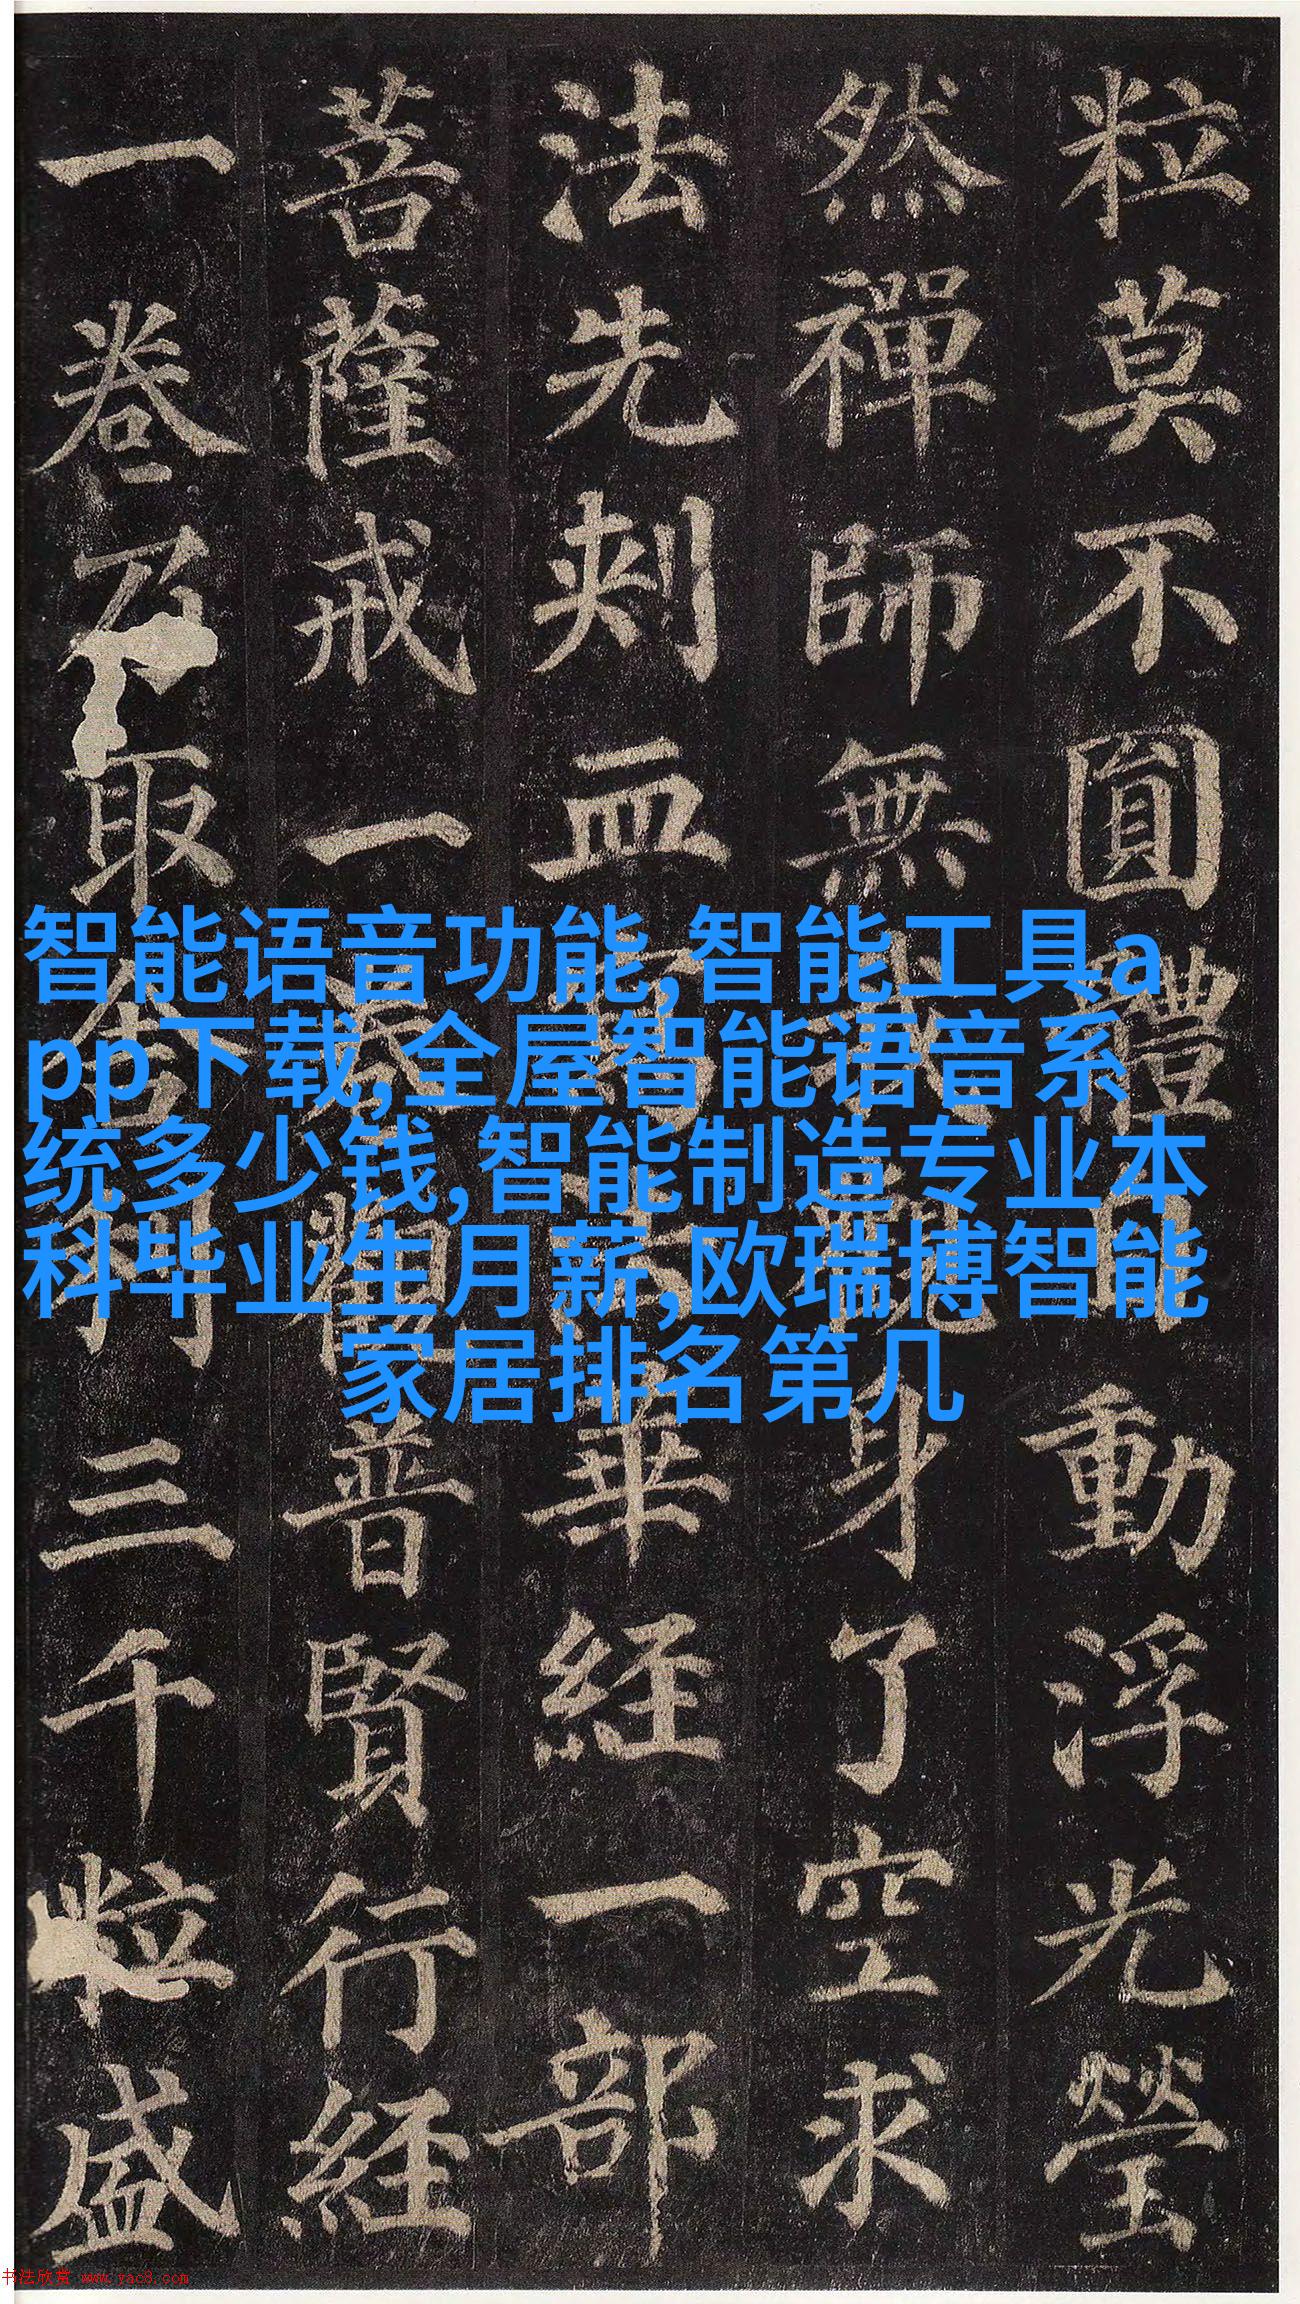 粒莫不圓體動浮光瑩
然禪師無我觀身了空求
法先刾血寫法華経一部
菩薩戒一卷觀普賢行経
一卷乃取舍利三千粒盛
智能语音功能,智能工具a
pp下载,全屋智能语音系
统多少钱,智能制造专业本
科毕业生月薪,欧瑞博智能
家居排名第几
书法欣赏 www.yac8.com